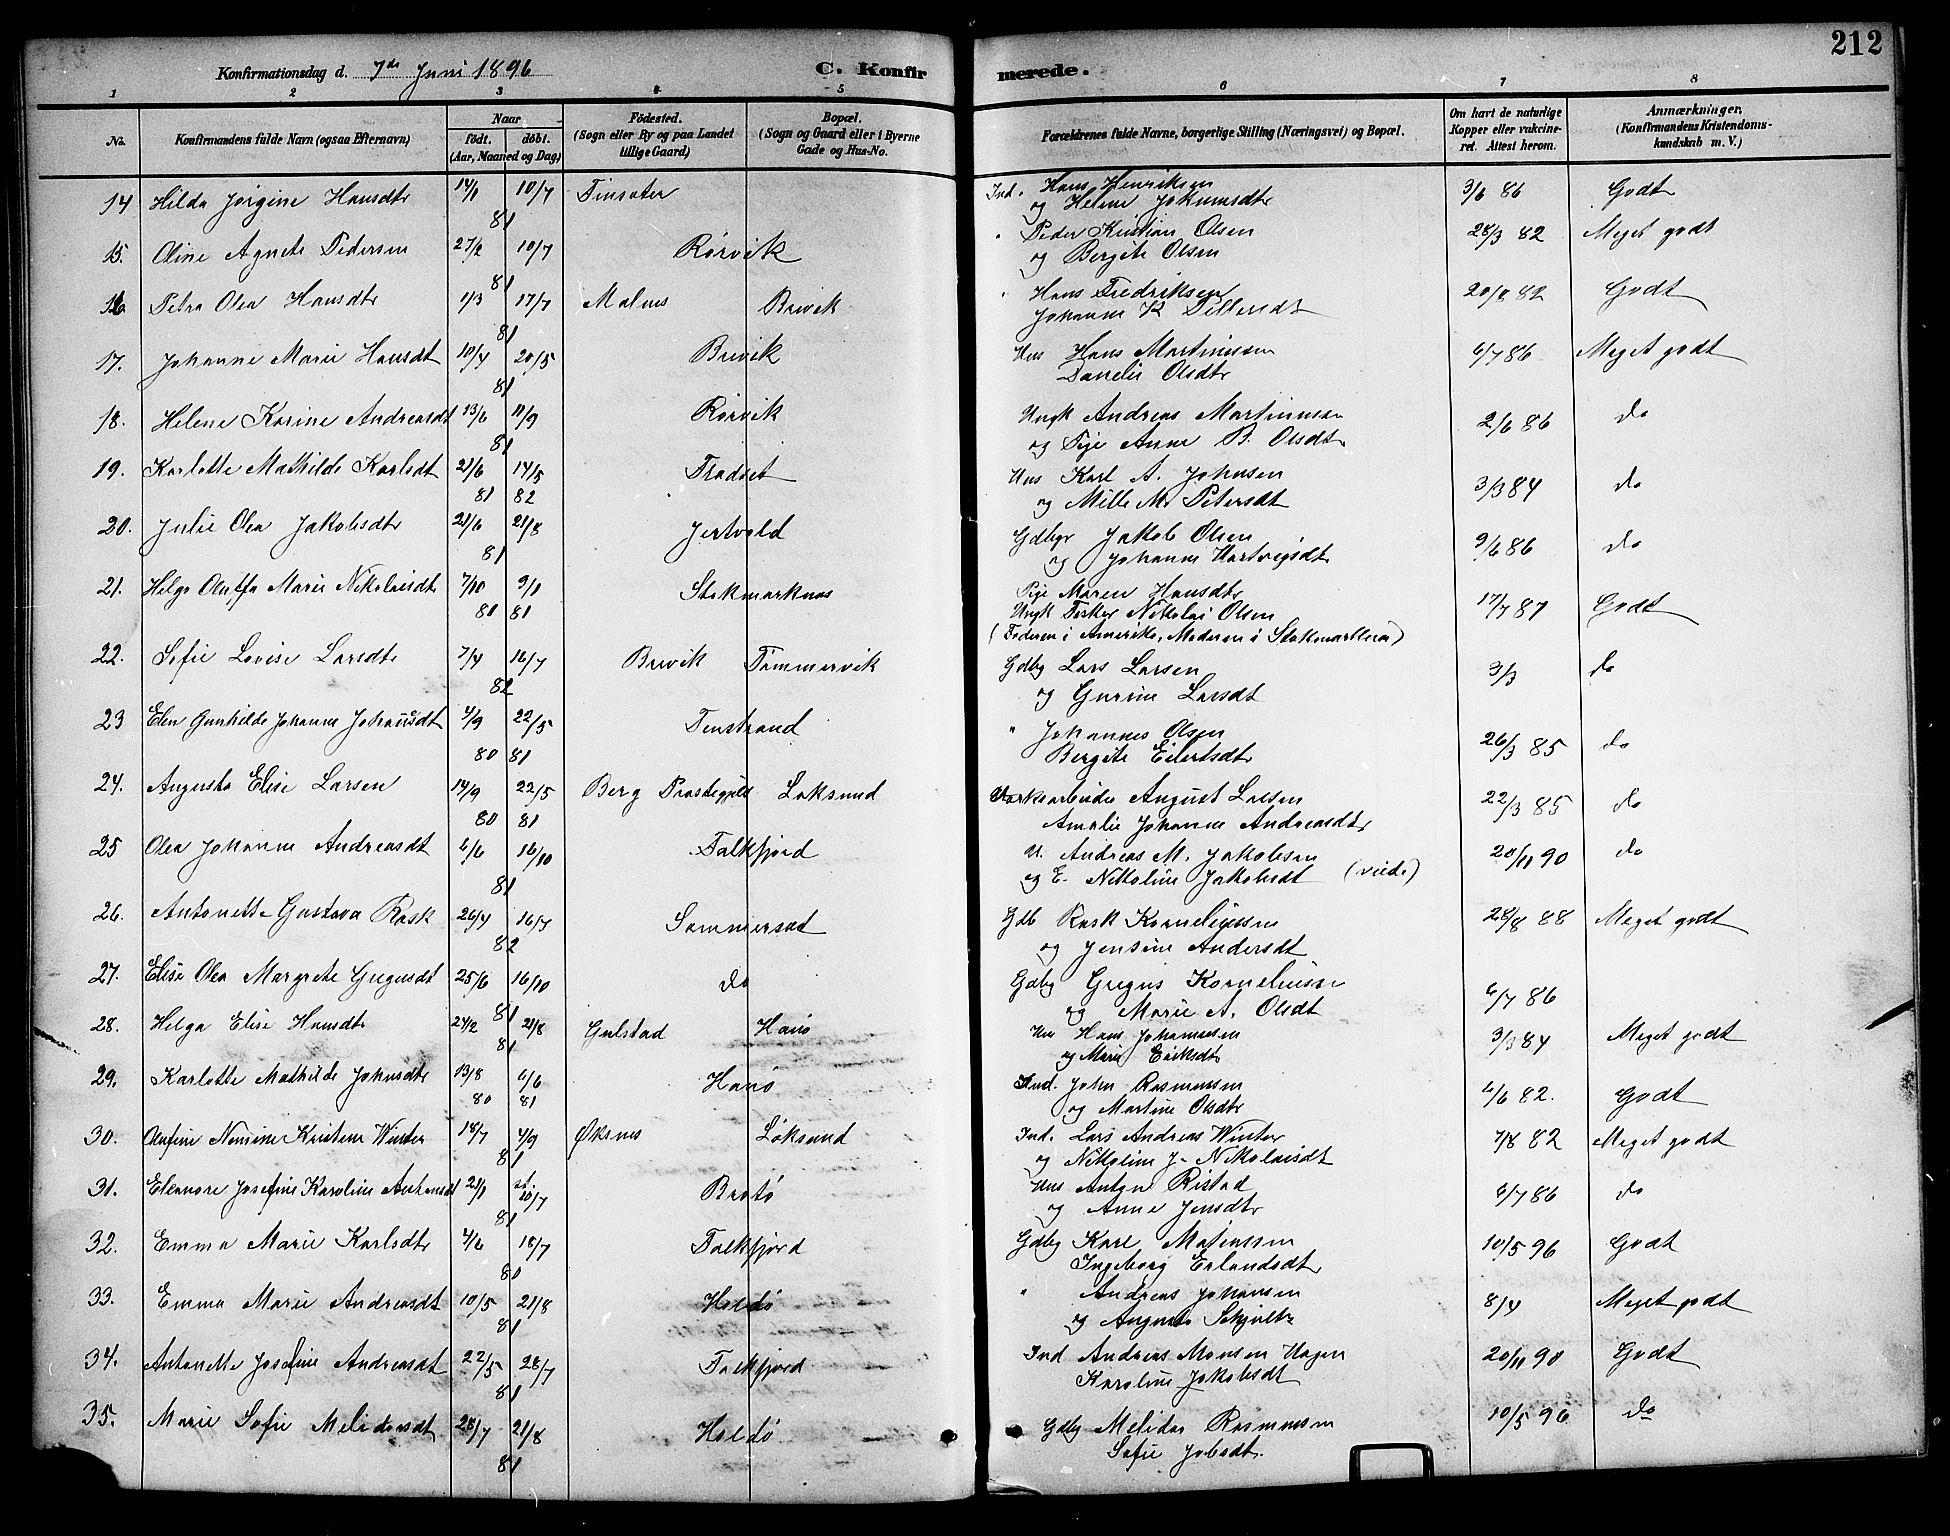 212
Konfirmationsdag d. 7de Juni 1896 C. Konfirmerede.
1 2 3 4 5 6 7 8
No. Konfirmandens fulde Navn (ogsaa Efternavn) Naar født. døbt. (Aar, Maaned og Dag) Fødested. (Sogn eller By og paa Landet tillige Gaard) Bopæl. (Sogn og Gaard eller i Byerne Gade og Hus-No. Forældrenes fulde Navne, borgerlige Stilling (Næringsvei) og Bopæl. Om havt de naturlige Kopper eller vakcineret. Attest herom. Anmærkninger, (Konfirmandens Kristendomskundskab m. V.)
14 Hilda Jørgine Hansdtr 14/1 10/7 81 Finsæter Ind. Hans Henriksen 3/6 86 Godt
og Helene Jokumsdtr
15. Oline Agnete Pedersen 27/2 10/7 81 Rørvik " Peder Kristian Olsen 28/3 82 Meget godt
og Bergite Olsen
16 Petra Olea Hansdtr 1/3 17/7 81 Malnes Breivik " Hans Fredriksen 20/8 82 Godt
Johanne K
17. Johanne Marie Hansdt 10/4 20/5 81 Breivik Hus Hans Martinussen 6/7 86 Meget godt
Danelie Olsdtr
18. Helene Karine Andreasdt 13/6 11/9 81 Rørvik Ungk Andreas Martinussen 2/6 86 do
og Pige Anne B. Olsdtr
19. Karlotte Mathilde Karlsdt 21/6 81 14/5 82 Fradset Hus Karl A. Johnsen 3/3 84 do
og Mille M. Petersdt
20. Julie Olea Jakobsdtr 21/6 21/8 81 Jertvold Gdbgr Jakob Olsen 9/6 86 do
og Johanne Hartvigsdt
21. Helga Olufa Marie Nikolaisdt 7/10 80 9/1 81 Stokmarknes Pige Maren Hansdtr 17/7 87 Godt
Ungk Fisker Nikolai Olsen
(Faderen i Amerika, Moderen i Stokmarknes)
22. Sofie Lovise Larsdtr 7/4 16/7 82 Breivik Tømmervik Gdbg Lars Larsen 3/3 do
og Gurine Larsdt
23 Elen Gunhilde Johanne Johansdt 4/9 80 22/5 81 Finstrand " Johannes Olsen 26/3 85 do
Bergite Eilertsdtr
24. Augusta Elise Larsen 14/9 80 22/5 81 Berg Præstegjeld Løksund August Larsen 22/3 85 do
Amalie Johanne Andreasdtr
25 Olea Johanne Andreasdt 6/6 16/10 81 Falkfjord U. Andreas M. Jakobsen 20/11 90 do
og E. Nikoline Jakobsdt (viede)
26. Antonette Gustava Rask 26/4 16/7 82 Sommersæt Gdb Rask Korneliussen 28/8 88 Meget godt
og Jensine Andersdt
27. Elise Olea Margrete Gregusdt 25/6 16/10 81 do Gdbg Gregus Korneliussen 6/7 86
og Marie A. Olsdt
28. Helga Elise Hansdtr 24/2 21/8 81 Gulstad Hanø Hus Hans Johannesen 3/3 84 Meget godt
og Marie Eriksdt
29. Karlotte Mathilde Johnsdtr 13/8 80 6/6 81 Hanø Ind. John Rasmussen 6/6 82. Godt
og Martine Olsdtr
30. Anfine Nensine Kristine Winter 18/7 4/9 81 Øksnes Løksund Ind. Lars Andreas Winter 7/8 82 Meget godt
og Nikoline J. Nikolaisdt
31. Eleanore Josefine Karoline Antonsdt 21/1 10/7 81 Brotø Hus Anton Ristad 6/7 86 do
og Anne Jensdtr
32. Emma Marie Karlsdtr 4/6 18/7 80 Falkfjord Gdbg Karl Matiassen 10/5 96 Godt
Ingeborg Erlandsdtr
33. Emma Marie Andreasdt 10/5 21/8 81 Holdø " Andreas Johansen 8/4 Meget godt
og Augusta
34. Antonette Josefine Andreasdt 22/5 28/7 81 Falkfjord Ind Andreas Monsen Hagen 20/11 90 Godt
Karoline Jakobsdt
35. Marie Sofie Melidorsdt 28/7 21/8 81 Holdø Gdbg Melidor Rasmussen 10/5 96 do
Sofie Jobsdt.